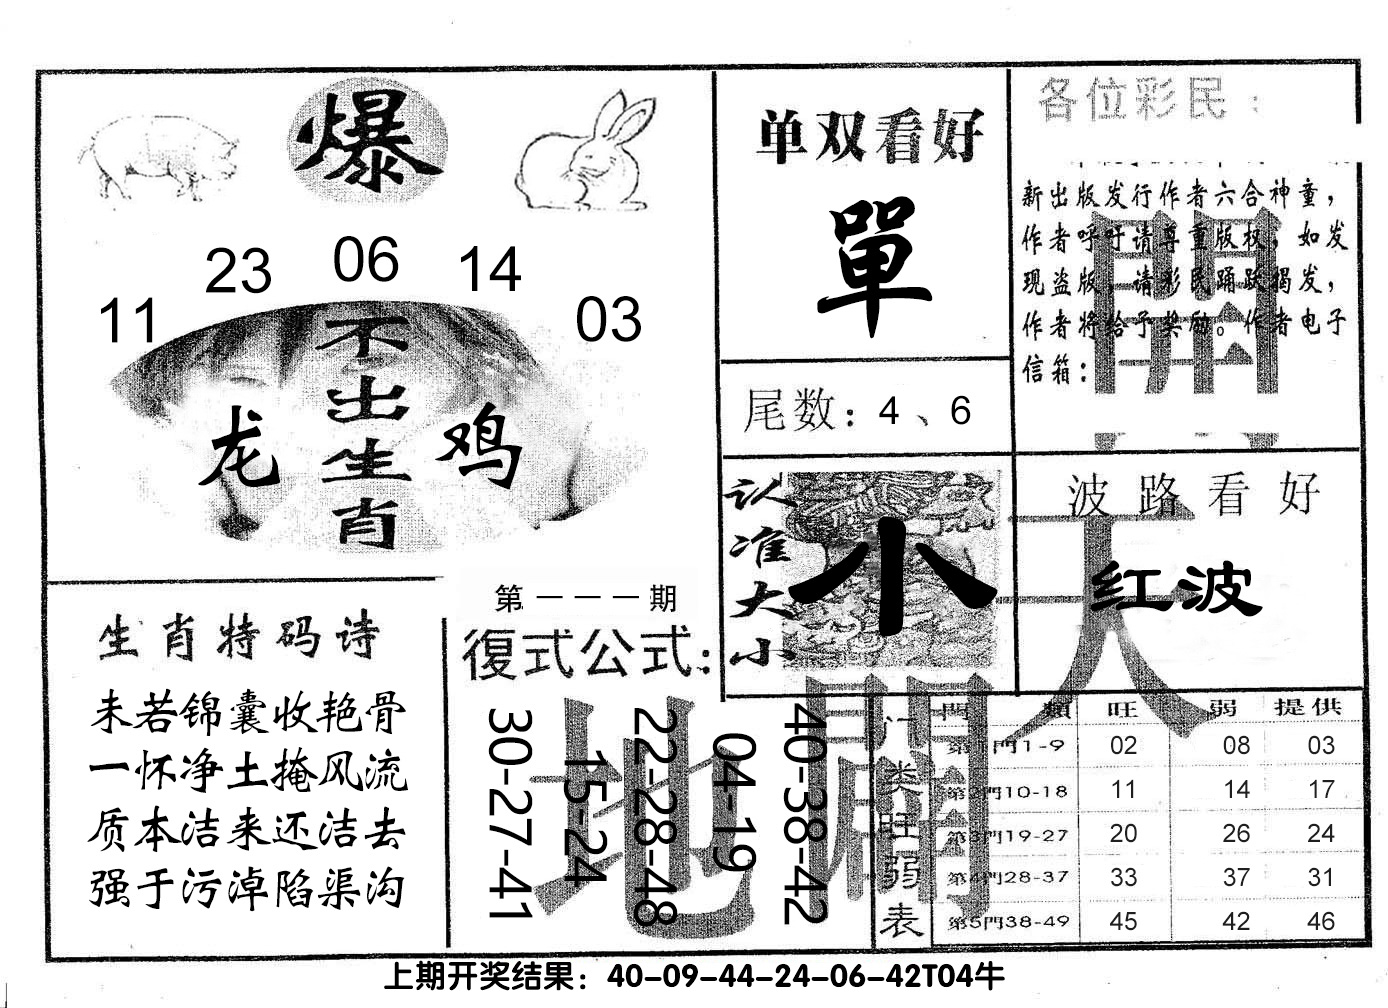 爆
11 23 06 14 03
不出生肖
龙 鸡
单双看好
單
尾数：4、6
各位彩民：
新出版发行作者六合神童，
作者呼吁请尊重版权，如发
现盗版，请彩民踊跃揭发，
作者将给予奖励。作者电子
信箱：
開
认准大小
小
波路看好
红波
天
生肖特码诗
未若锦囊收艳骨
一怀净土掩风流
质本洁来还洁去
强于污淖陷渠沟
第一一一期
復式公式：
30-27-41
15-24
22-28-48
04-19
40-38-42
地
開
门类旺弱表
門類 旺 弱 提供
第1門1-9 02 08 03
第2門10-18 11 14 17
第3門19-27 20 26 24
第4門28-37 33 37 31
第5門38-49 45 42 46
上期开奖结果：40-09-44-24-06-42T04牛